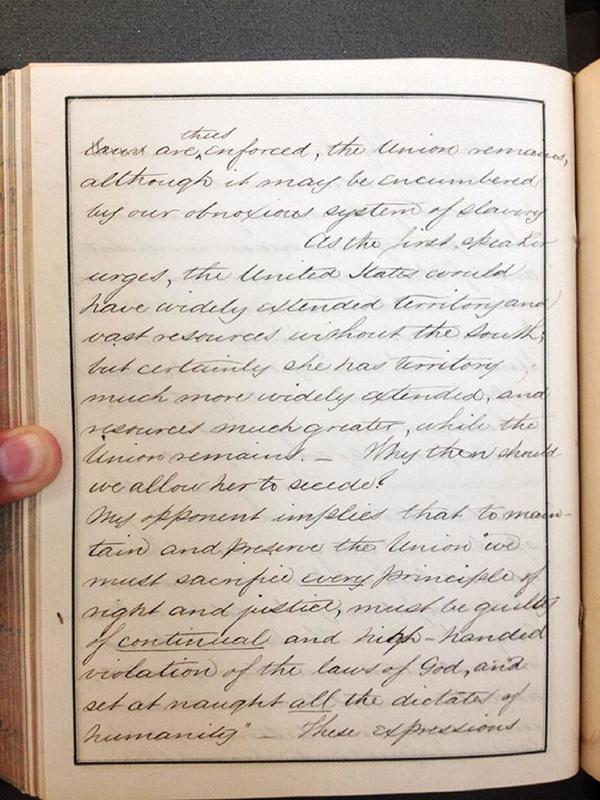 thus
Laws are, enforced, the Union remains,
although it may be encumbered
by our obnoxious system of slavery
As the first speaker
urges, the United States would
have widely extended territory and
vast resources without the South;
but certainly she has territory
much more widely extended, and
resources much greater, while the
Union remains. — Why then should
we allow her to secede?
My opponent implies that to main-
tain and preserve the Union "we
must sacrifice every principle of
right and justice, must be guilty
of continual and high-handed
violation of the laws of God, and
set at naught all the dictates of
humanity" — These expressions